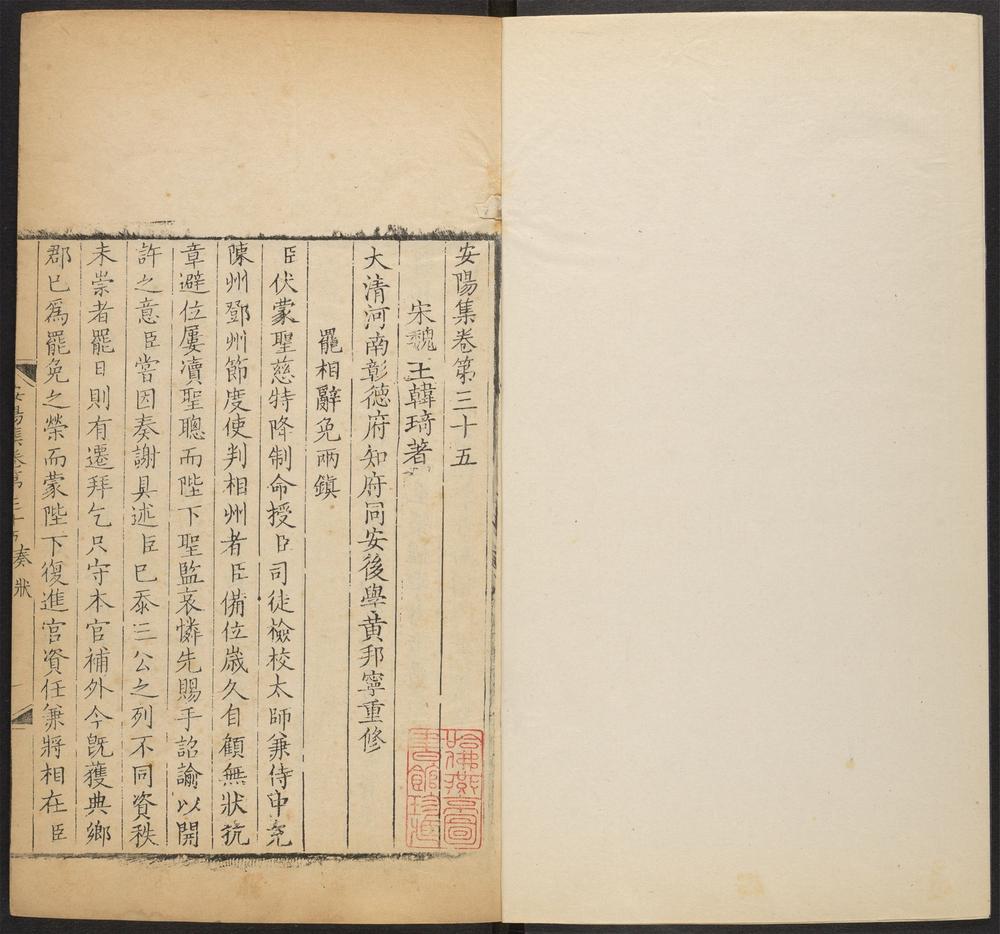 安陽集卷第三十五
宋魏王韓琦著
大清河南彰德府知府同安後學黃邦寧重修
罷相辭免兩鎮
臣伏蒙聖慈特降制命授臣司徒檢校太師兼侍中充
陳州鄧州節度使判相州者臣備位歲久自顧無狀抗
章避位屢瀆聖聰而陛下聖監哀憐先賜手詔諭以開
許之意臣嘗因奏謝具述臣已忝三公之列不同資秩
未崇者罷日則有遷拜乞只守本官補外今旣獲典鄉
郡已爲罷免之榮而蒙陛下復進官資任兼將相在臣
安陽集卷第三十五 奏狀
哈佛燕京圖
書館珍藏